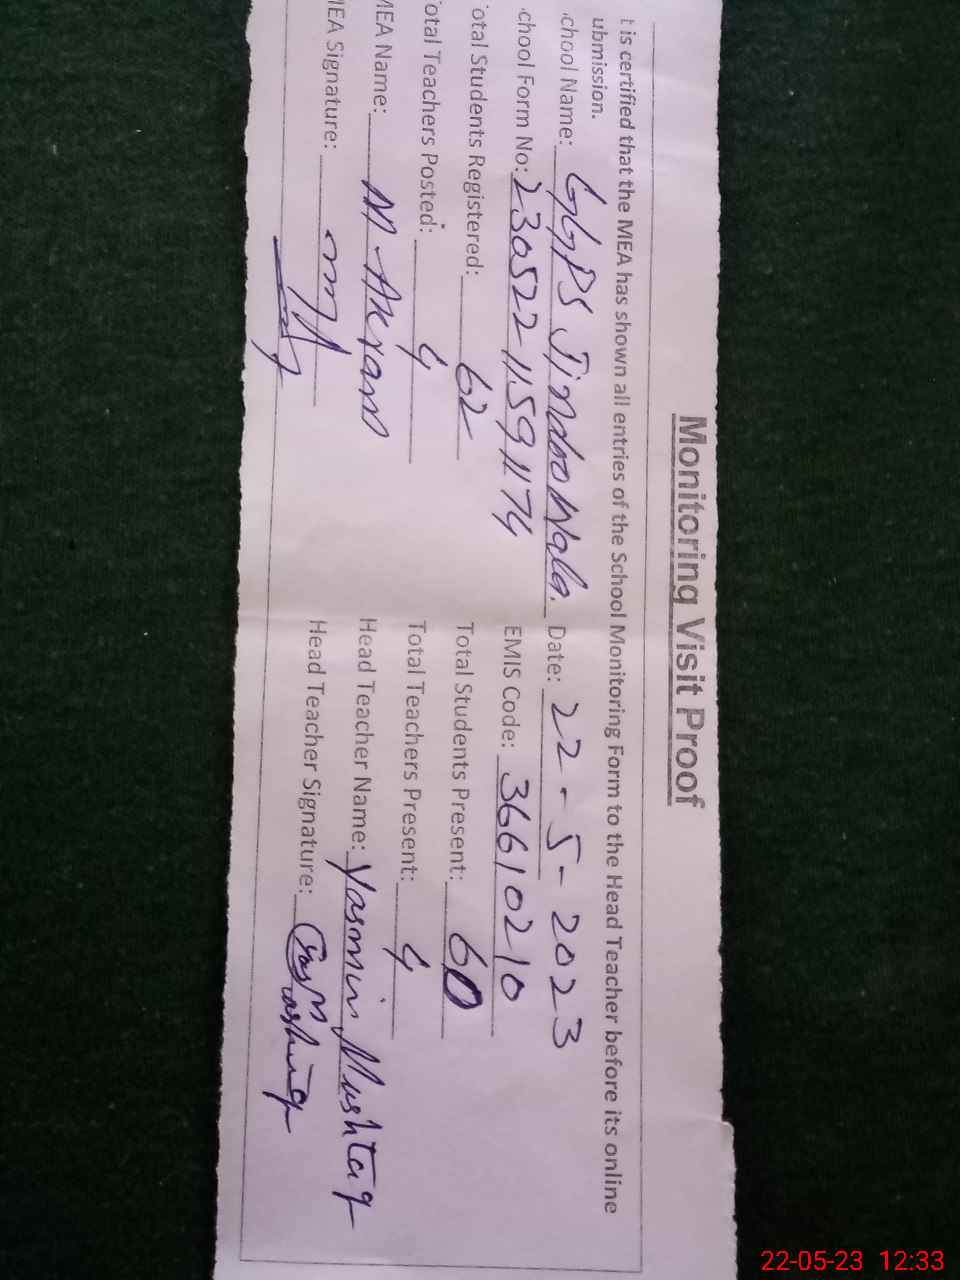 Monitoring Visit Proof
t is certified that the MEA has shown all entries of the School Monitoring Form to the Head Teacher before its online
ubmission.
chool Name: GGPS Jindoo Wala. Date: 22-5-2023
chool Form No: 230522115911174 EMIS Code: 36610210
otal Students Registered: 62 Total Students Present: 60
otal Teachers Posted: 4 Total Teachers Present: 4
MEA Name: M. Akram Head Teacher Name: Yasmin Mushtaq
MEA Signature: Head Teacher Signature:
22-05-23 12:33